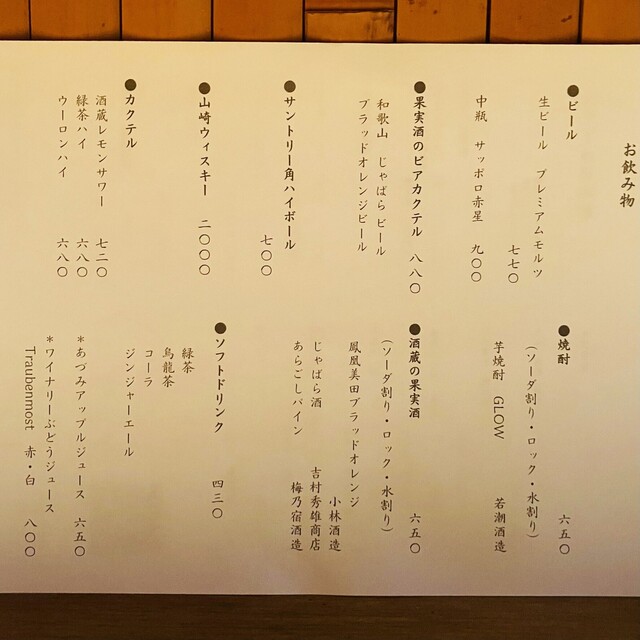 お飲み物
●ビール
生ビール プレミアムモルツ
七七〇
中瓶 サッポロ赤星 九〇〇
●果実酒のビアカクテル 八八〇
和歌山 じゃばらビール
ブラッドオレンジビール
●サントリー角ハイボール
七〇〇
●山崎ウィスキー 二〇〇〇
●カクテル
酒蔵レモンサワー 七二〇
緑茶ハイ 六八〇
ウーロンハイ 六八〇
●焼酎 六五〇
(ソーダ割り・ロック・水割り)
芋焼酎 GLOW 若潮酒造
●酒蔵の果実酒 六五〇
(ソーダ割り・ロック・水割り)
鳳凰美田ブラッドオレンジ
小林酒造
じゃばら酒 吉村秀雄商店
あらごしパイン 梅乃宿酒造
●ソフトドリンク 四三〇
緑茶
烏龍茶
コーラ
ジンジャーエール
*あづみアップルジュース 六五〇
*ワイナリーぶどうジュース
Traubenmost 赤・白 八〇〇